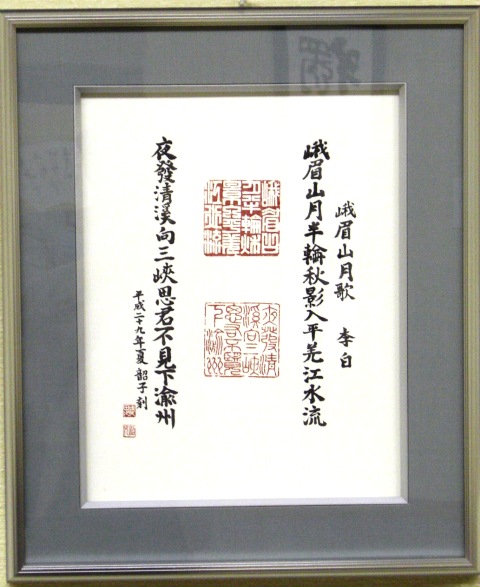 峨眉山月歌 李白
峨眉山月半輪秋影入平羌江水流
峨眉山
月半輪秋
影入平羌
江水流
夜發清
溪向三峽
思君不見
下渝州
夜發清溪向三峽思君不見下渝州
平成二十九年夏 韶子刻